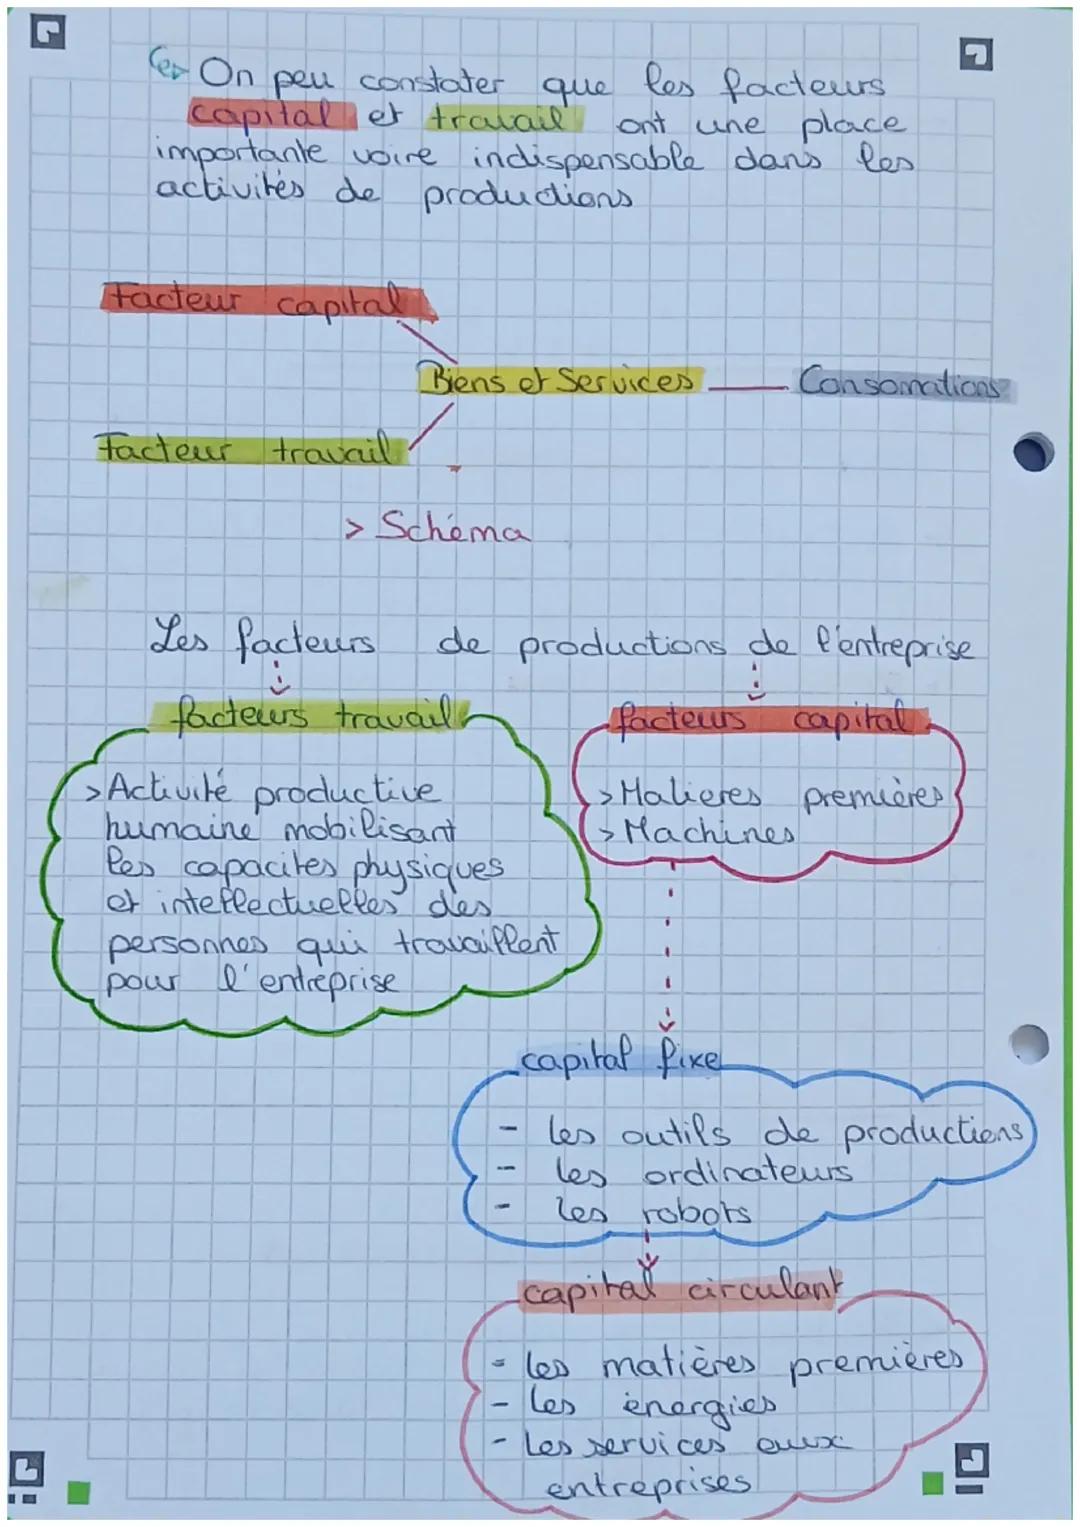 On peu constater que les facteurs
capital et travail ont une place
importante voire indispensable dans les
activités de productions
Facteur capital
Biens et Services
Consomations
Facteur travail
> Schéma
Les facteurs de productions de l'entreprise
facteurs travail
> Activité productive
humaine mobilisant
les capacites physiques
et intellectuelles des
personnes qui travaillent
pour l'entreprise
facteurs capital
> Matieres premières
> Machines
capital fixe
- les outils de productions
- les ordinateurs
- les robots
capital circulant
- les matières premières
- les énergies
- les services aux
entreprises